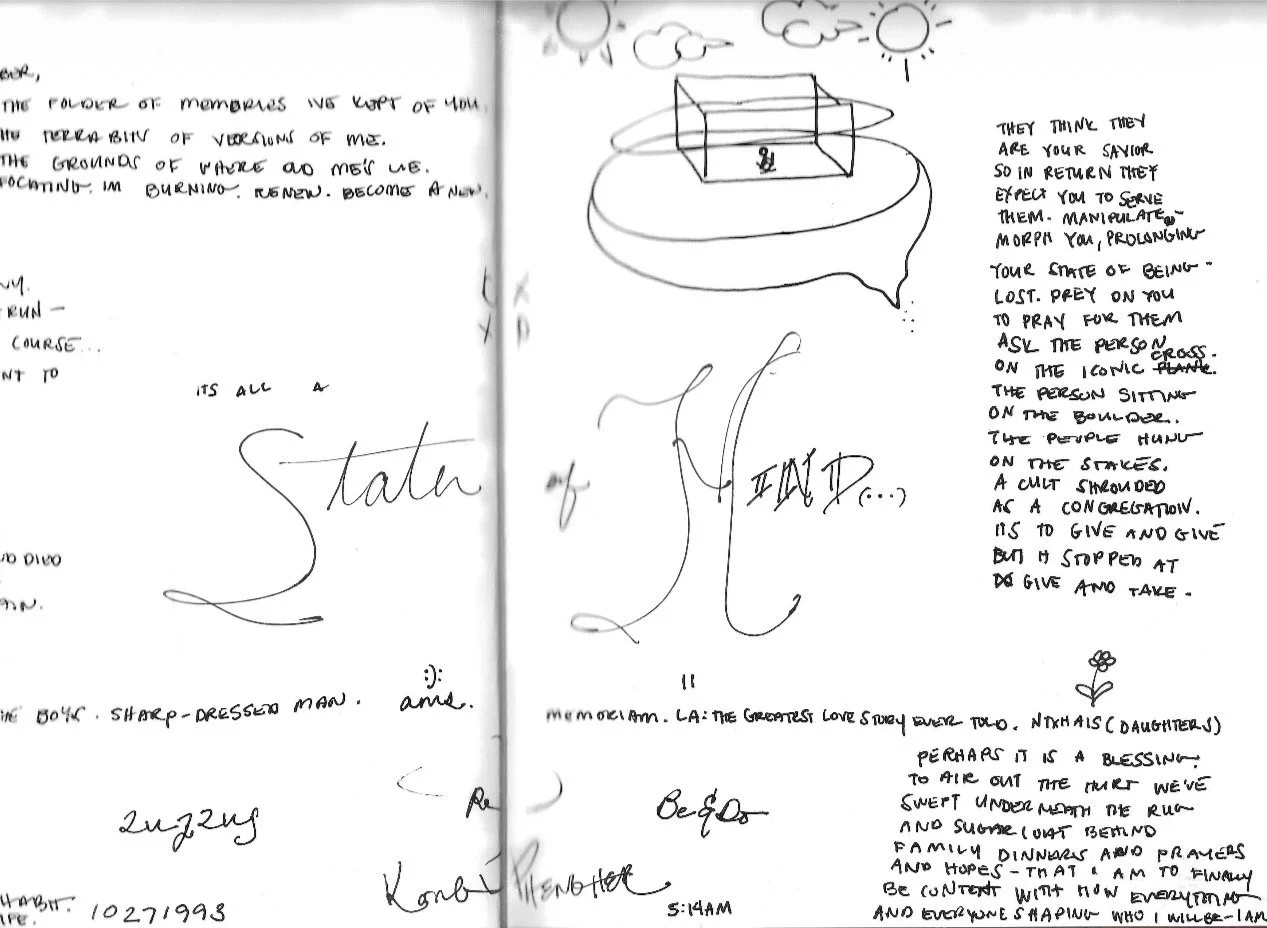 THE FOLDER OF MEMORIES IVE KEPT OF YOU.
THE TERRABITS OF VERSIONS OF ME.
THE GROUNDS OF WHERE OLD ME'S LIE.
IM BURNING. RENEW. BECOME A NEW.
RUN –
COURSE...
NT TO
ITS ALL A
State
AND DIVO
THE BOYS. SHARP-DRESSED MAN.
:):
ama.
zugzug
Re
HABIT.
IFE.
10271993
THEY THINK THEY
ARE YOUR SAVIOR
SO IN RETURN THEY
EXPECT YOU TO SERVE
THEM. MANIPULATE
MORPH YOU, PROLONGING
YOUR STATE OF BEING -
LOST. PREY ON YOU
TO PRAY FOR THEM
ASK THE PERSON
ON THE ICONIC PLANK CROSS.
THE PERSON SITTING
ON THE BOULDER..
THE PEOPLE HUNG
ON THE STAKES.
A CULT SHROUDED
AS A CONGREGATION.
ITS TO GIVE AND GIVE
BUT IT STOPPED AT
GIVE AND TAKE.
of
MIND...(...)
memoriam. LA: THE GREATEST LOVE STORY EVER TOLD. NTXHAIS (DAUGHTERS)
Be & Do
PHENGHER
5:14AM
PERHAPS IT IS A BLESSING.
TO AIR OUT THE HURT WE'VE
SWEPT UNDERNEATH THE RUG
AND SUGAR COAT BEHIND
FAMILY DINNERS AND PRAYERS
AND HOPES - THAT I AM TO FINALLY
BE CONTENT WITH HOW EVERYTHING
AND EVERYONE SHAPING WHO I WILL BE - I AM